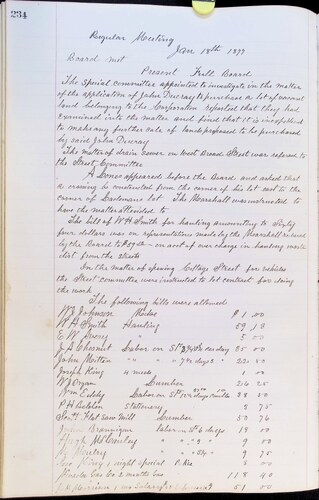 234
Regular Meeting
Jan 18th 1899
Board met
Present Full Board
The Special committee appointed to investigate in the matter
of the application of John Ducray to purchase a lot of vacant
land belonging to the Corporation reported that they had
examined into the matter and find that it is inexpedient
to make any further sale of land proposed to be purchased
by said John Ducray
The matter of drain sewer on West Broad Street was referred to
the Street Committee
A. Bonso appeared before the Board and asked that
a crossing be constructed from the corner of his lot next to the
corner of lot. The Marshall was instructed to
have the matter attended to
The bill of W H Smith for hauling amounting to Sixty
four dollars was on representations made by the Marshall reduced
by the Board to on acct of over charge in hauling
dirt from the streets
In the matter of opening Cottage Street for vehicles
the Street committee were instructed to let contract for doing
the work
The following bills were allowed
W J Johnson $1.00
W H Smith Hauling 59.18
E W 5.00
J A Chesnut Labor on St 25.00
John Motton " " " days 22.50
Joseph King 4 week 1.00
W J Organ Lumber 216.25
Wm Eddy Labor on St 28.50
P H Stationery 2.75
Lumber 50.76
John Brannigan Labor on St 6 days 18.00
Hugh McCauley " " " 9.00
" " " 9.75
King 1 night special 3.00
2 months 118.40
51.00